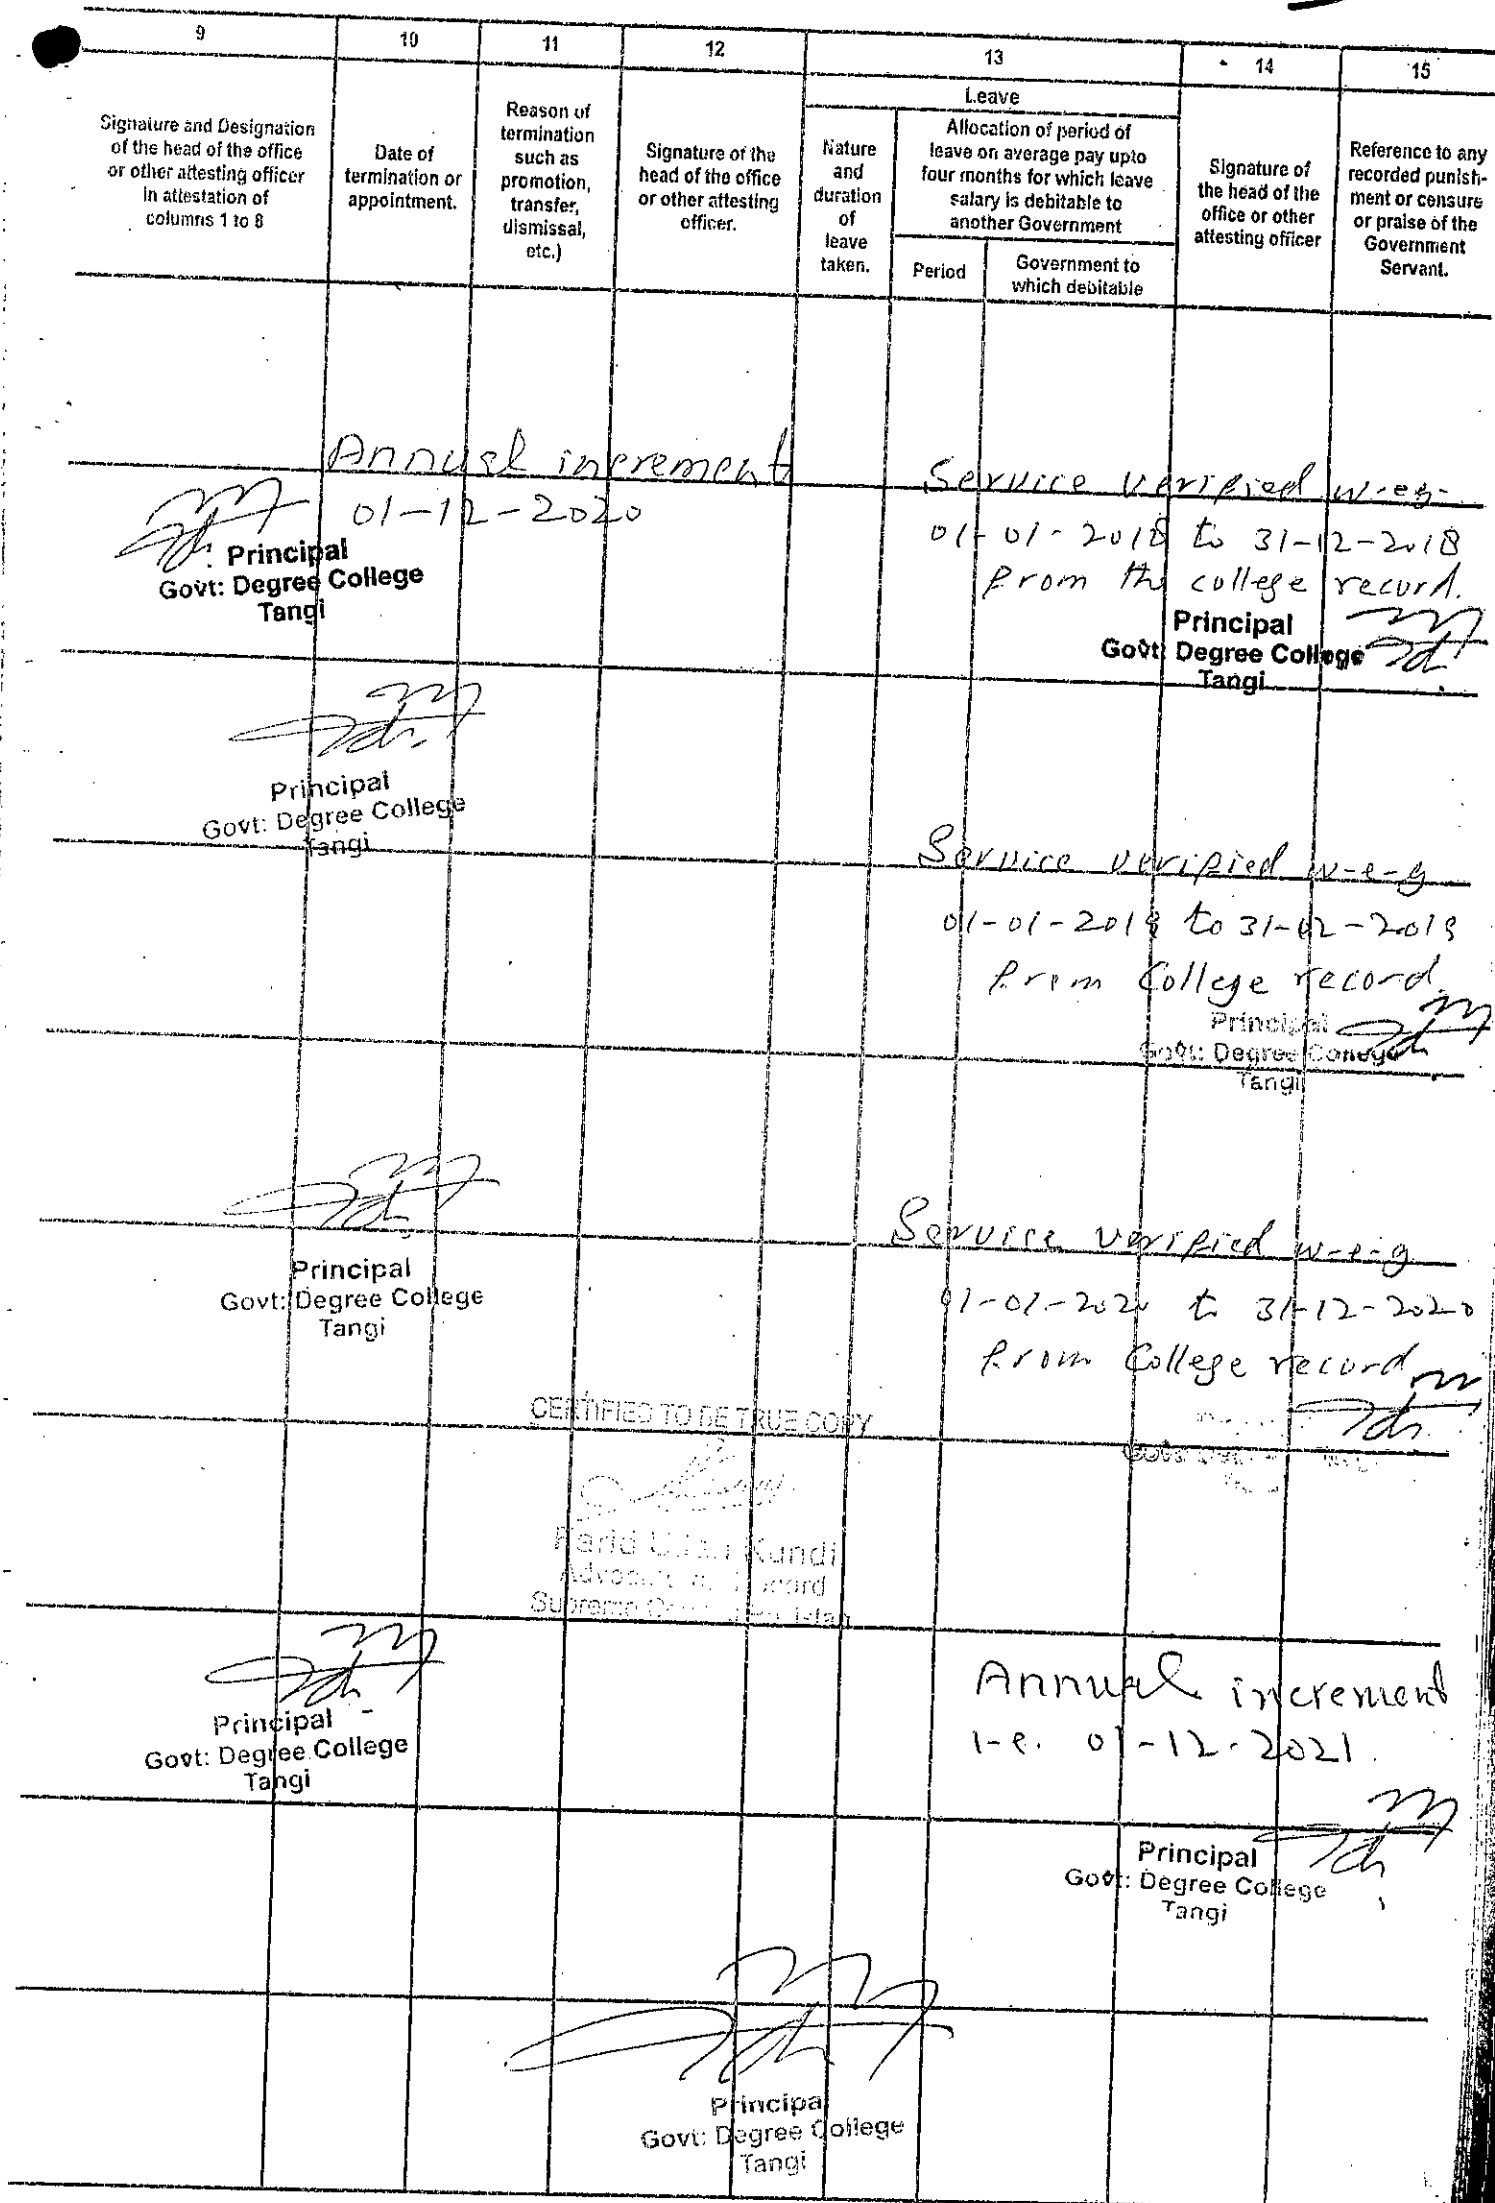 9 10 11 12 13 14 15
Signature and Designation
of the head of the office
or other attesting officer
in attestation of
columns 1 to 8
Date of
termination or
appointment.
Reason of
termination
such as
promotion,
transfer,
dismissal,
etc.)
Signature of the
head of the office
or other attesting
officer.
Leave
Nature
and
duration
of
leave
taken.
Allocation of period of
leave on average pay upto
four months for which leave
salary is debitable to
another Government
Period
Government to
which debitable
Signature of
the head of the
office or other
attesting officer
Reference to any
recorded punish-
ment or censure
or praise of the
Government
Servant.
Annual increment
01-12-2020
Principal
Govt: Degree College
Tangi
Service verified
01-01-2018 to 31-12-2018
from the college record.
Principal
Govt: Degree College
Tangi
Principal
Govt: Degree College
Tangi
Service verified w-e-g
01-01-2019 to 31-12-2019
from College record
Principal
Govt: Degree College
Tangi
Principal
Govt: Degree College
Tangi
Service verified w-e-g
01-01-2020 to 31-12-2020
from College record
CERTIFIED TO BE TRUE COPY
Kundi
Supreme
Principal
Govt: Degree College
Tangi
Annual increment
i-e. 01-12-2021.
Principal
Govt: Degree College
Tangi
Principal
Govt: Degree College
Tangi